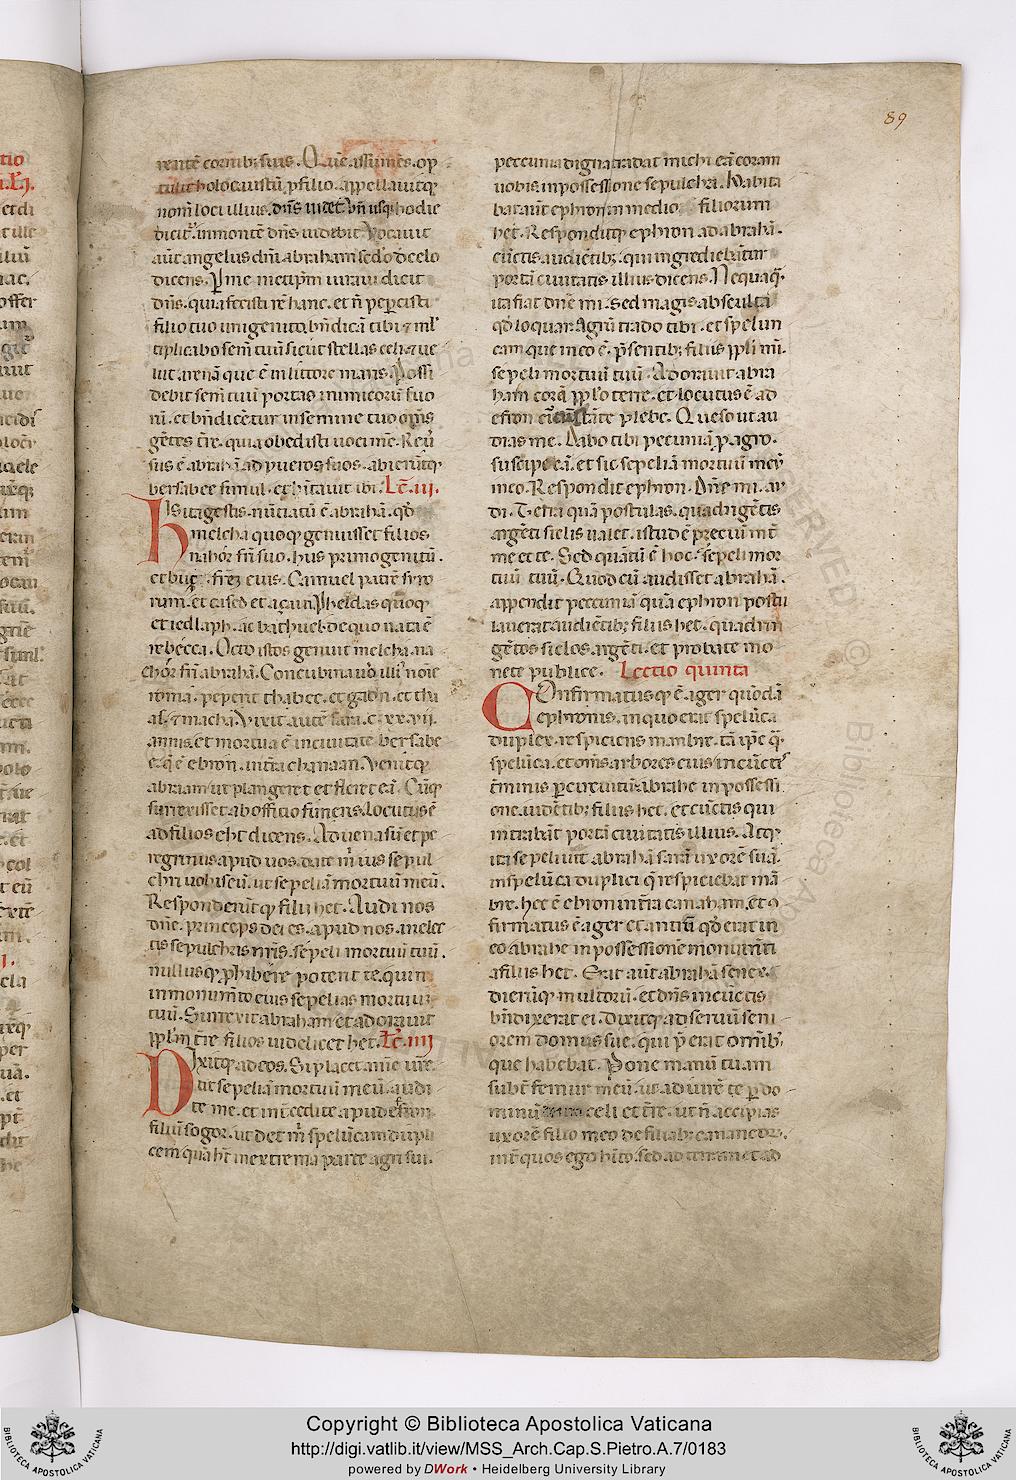 89
rentē cornib; suis. Quē assumēs. op
tulit holocaustū ꝓ filio. appellauitq̨
nom̄ loci illius. dn̄s uidet. Vn̄ usq̨ hodie
dicit᷑. inmonte dn̄s uidebit. Vocauit
aūt angelus dn̄i abraham sedo de celo
dicens. Ꝑ me metip̄m iuraui dicit
dn̄s. quia fecisti rē hanc. et n̄ pepercisti
filio tuo unigenito. bn̄dicā tibi ⁊ ml̄
tiplicabo sem̄ tuū sicut stellas celi. ⁊ ue
lut arenā que ē in littore maris. Possi
debit sem̄ tuū portas inimicorū suo
rū. et bn̄dicētur in semine tuo om̄s
gētes tr̄e. quia obedisti uoci mee. Reū
sus ē abrahā ad pueros suos. abierūtq̨
bersabee simul. et hītauit ibi. Lc̄. iii.
His itagestis. nūtiatū ē abrahā. qd̄
melcha quoq̨ genuisset filios
nahor fr̄i suo. hus primogenitū.
et buz. frēz eius. Camuel patrē syro
rum. et cased et azau. Pheldas quoq̨
et iedlaph. ac bathuel. de quo nata ē
rebecca. Octo istos genuit melcha. na
chor fr̄i abrahā. Concubina uō illi᷒ noīe
roma. peperit thabee. et gaon. et tha
as. ⁊ macha. Vixit autē sara. c. xx. vii.
annis. et mortua ē in ciuitate bersabe
e. q̄ ē ebron. in tr̄a chanaan. Venitq̨
abraam ut plangeret et fleret eā. Cūq̨
surrexisset ab officio funeris. locutus ē
ad filios eht dicens. Aduena sū et pe
regrinus apud uos. date m̄ ius sepul
chri uobiscū. ut sepeliā mortuū meū.
Responderūtq̨ filii het. Audi nos
dn̄e. princeps dei es. apud nos. in elec
tis sepulchris nr̄is. sepeli mortuū tuū.
nullusq̨ ꝓhibere poterit te. quin
in monum̄to eius sepelias mortuū
tuū. Surrexit abraham et adorauit
pp̄lm tr̄e. filios uidelicet het. Lc̄. iiii
Dixitq̨ ad eos. Si placet anīe ur̄e.
ut sepeliā mortuū meū. audi
te me. et int̄cedite apud efron
filiū sogor. ut det m̄ spelūcam dupli
cem quā ht̄ in extrema parte agri sui.
peccunia digna tradat michi eā coram
uobis in possessione sepulchri. Habita
bat aūt ephron in medio filiorum
het. Responditq̨ ephron ad abrahā.
cūctis audiētib;. qui ingrediebātur
portā ciuitatis illius dicens. Nequaq̄.
ita fiat dn̄e mi. sed magis absculta
qd̄ loquar. Agrū trado tibi. et spelun
cam que in eo ē. p̄sentib; filiis pp̄li mi.
sepeli mortuū tuū. Adorauit abra
ham corā pp̄lo terre. et locutus ē ad
efron cūstāte plebe. Queso ut au
dias me. Dabo tibi pecuniā ꝓ agro.
suscipe eā. et sic sepeliā mortuū meū
in eo. Respondit ephron. Dn̄e mi. au
di. Terra quā postulas. quadrigētis
argēti siclis ualet. istud ē preciū int̄
me et te. Sed quātū ē hoc. sepeli mor
tuū tuū. Quod cū audisset abrahā.
appendit peccuniā quā ephron postu
lauerat audiētib; filiis het. quadrin
gētos siclos argēti. et probate mo
nete publice. Lectio quinta
Confirmatusq̨ ē ager quōdā
ephronis. in quo erat spelūca
duplex. respiciens manbre. tā ip̄e q̄.
spelūca. et om̄s arbores eius in cūctis
t̄minis per circuitū. abrahe in possessi
one. uidētib; filiis het. et cūctis qui
intrabāt portā ciuitatis illius. Atq̨
ita sepeliuit abrahā sarā uxorē suā.
in spelūca duplici q̄ respiciebat mā
bre. hec ē ebron in tr̄a canaham. et cō
firmatus ē ager et antrū qd̄ erat in
eo abrahe in possessionē monum̄ti
a filiis het. Erat aūt abrahā senex.
dierūq̨ multorū. et dn̄s in cūctis
bn̄dixerat ei. Dixitq̨ ad seruū seni
orem domus sue. qui p̄erat om̄ib;
que habebat. Pone manū tuam
subt̄ femur meū. ut adiurē te per do
minū celi et tr̄e. ut n̄ accipias
uxorē filio meo de filiab; cananeor̄.
int̄ quos ego hīto. sed ad terram et ad
Copyright © Biblioteca Apostolica Vaticana
http://digi.vatlib.it/view/MSS_Arch.Cap.S.Pietro.A.7/0183
powered by DWork • Heidelberg University Library
BIBLIOTECA APOSTOLICA VATICANA
BIBLIOTECA APOSTOLICA VATICANA